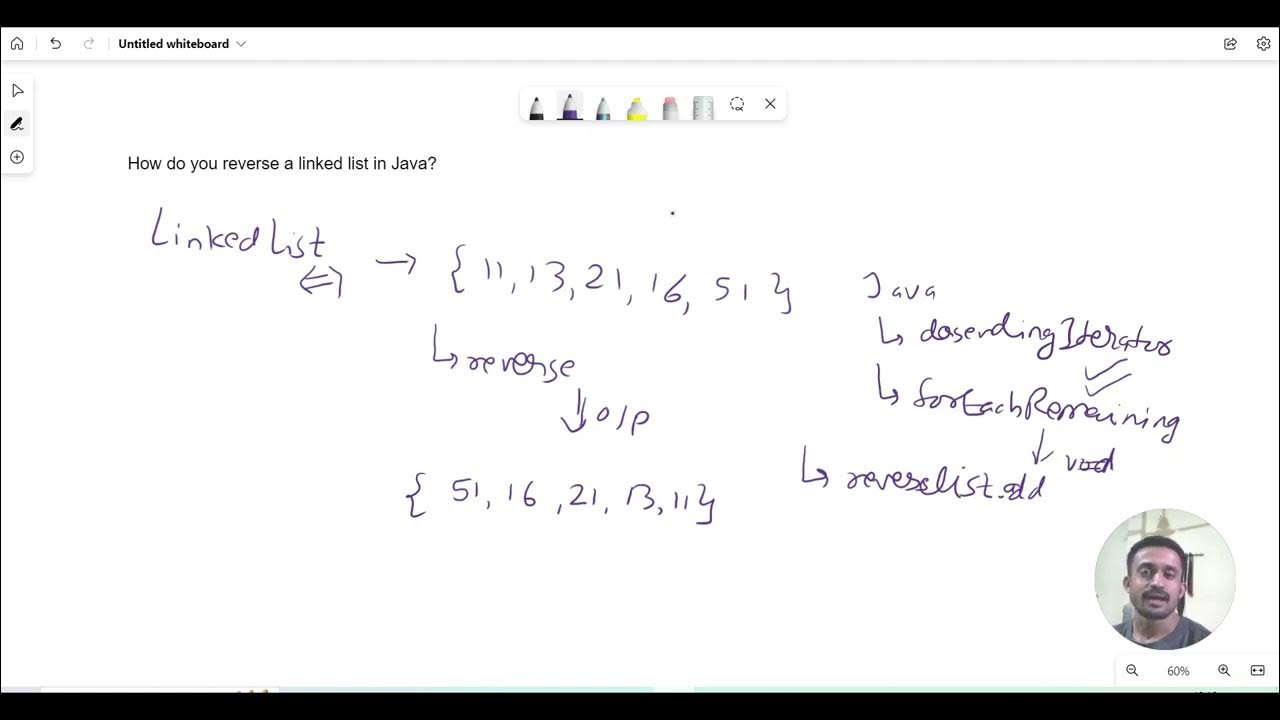 Untitled whiteboard
How do you reverse a linked list in Java?
Linked List
→ { 11, 13, 21, 16, 51 }
Java
↳ dasendingIterator
↳ reverse
↳ forEachRemaining
o/p
void
↳ reverselist.add
{ 51, 16, 21, 13, 11 }
60%